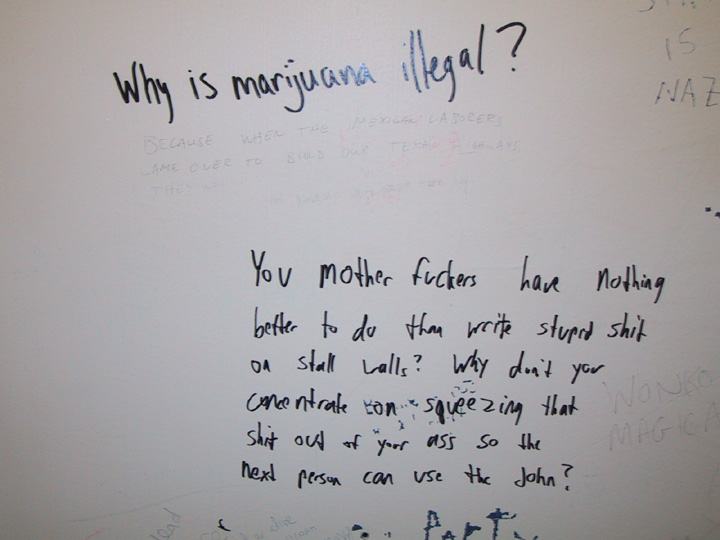 Why is marijuana illegal?
IS
NAZ
BECAUSE WHEN THE MEXICAN LABORERS
CAME OVER TO BUILD OUR TEXAN HIGHWAYS
THEY
You mother fuckers have nothing
better to do than write stupid shit
on stall walls? Why don't you
concentrate on squeezing that
shit out of your ass so the
next person can use the John?
WONKO
MAGICA
PARTY